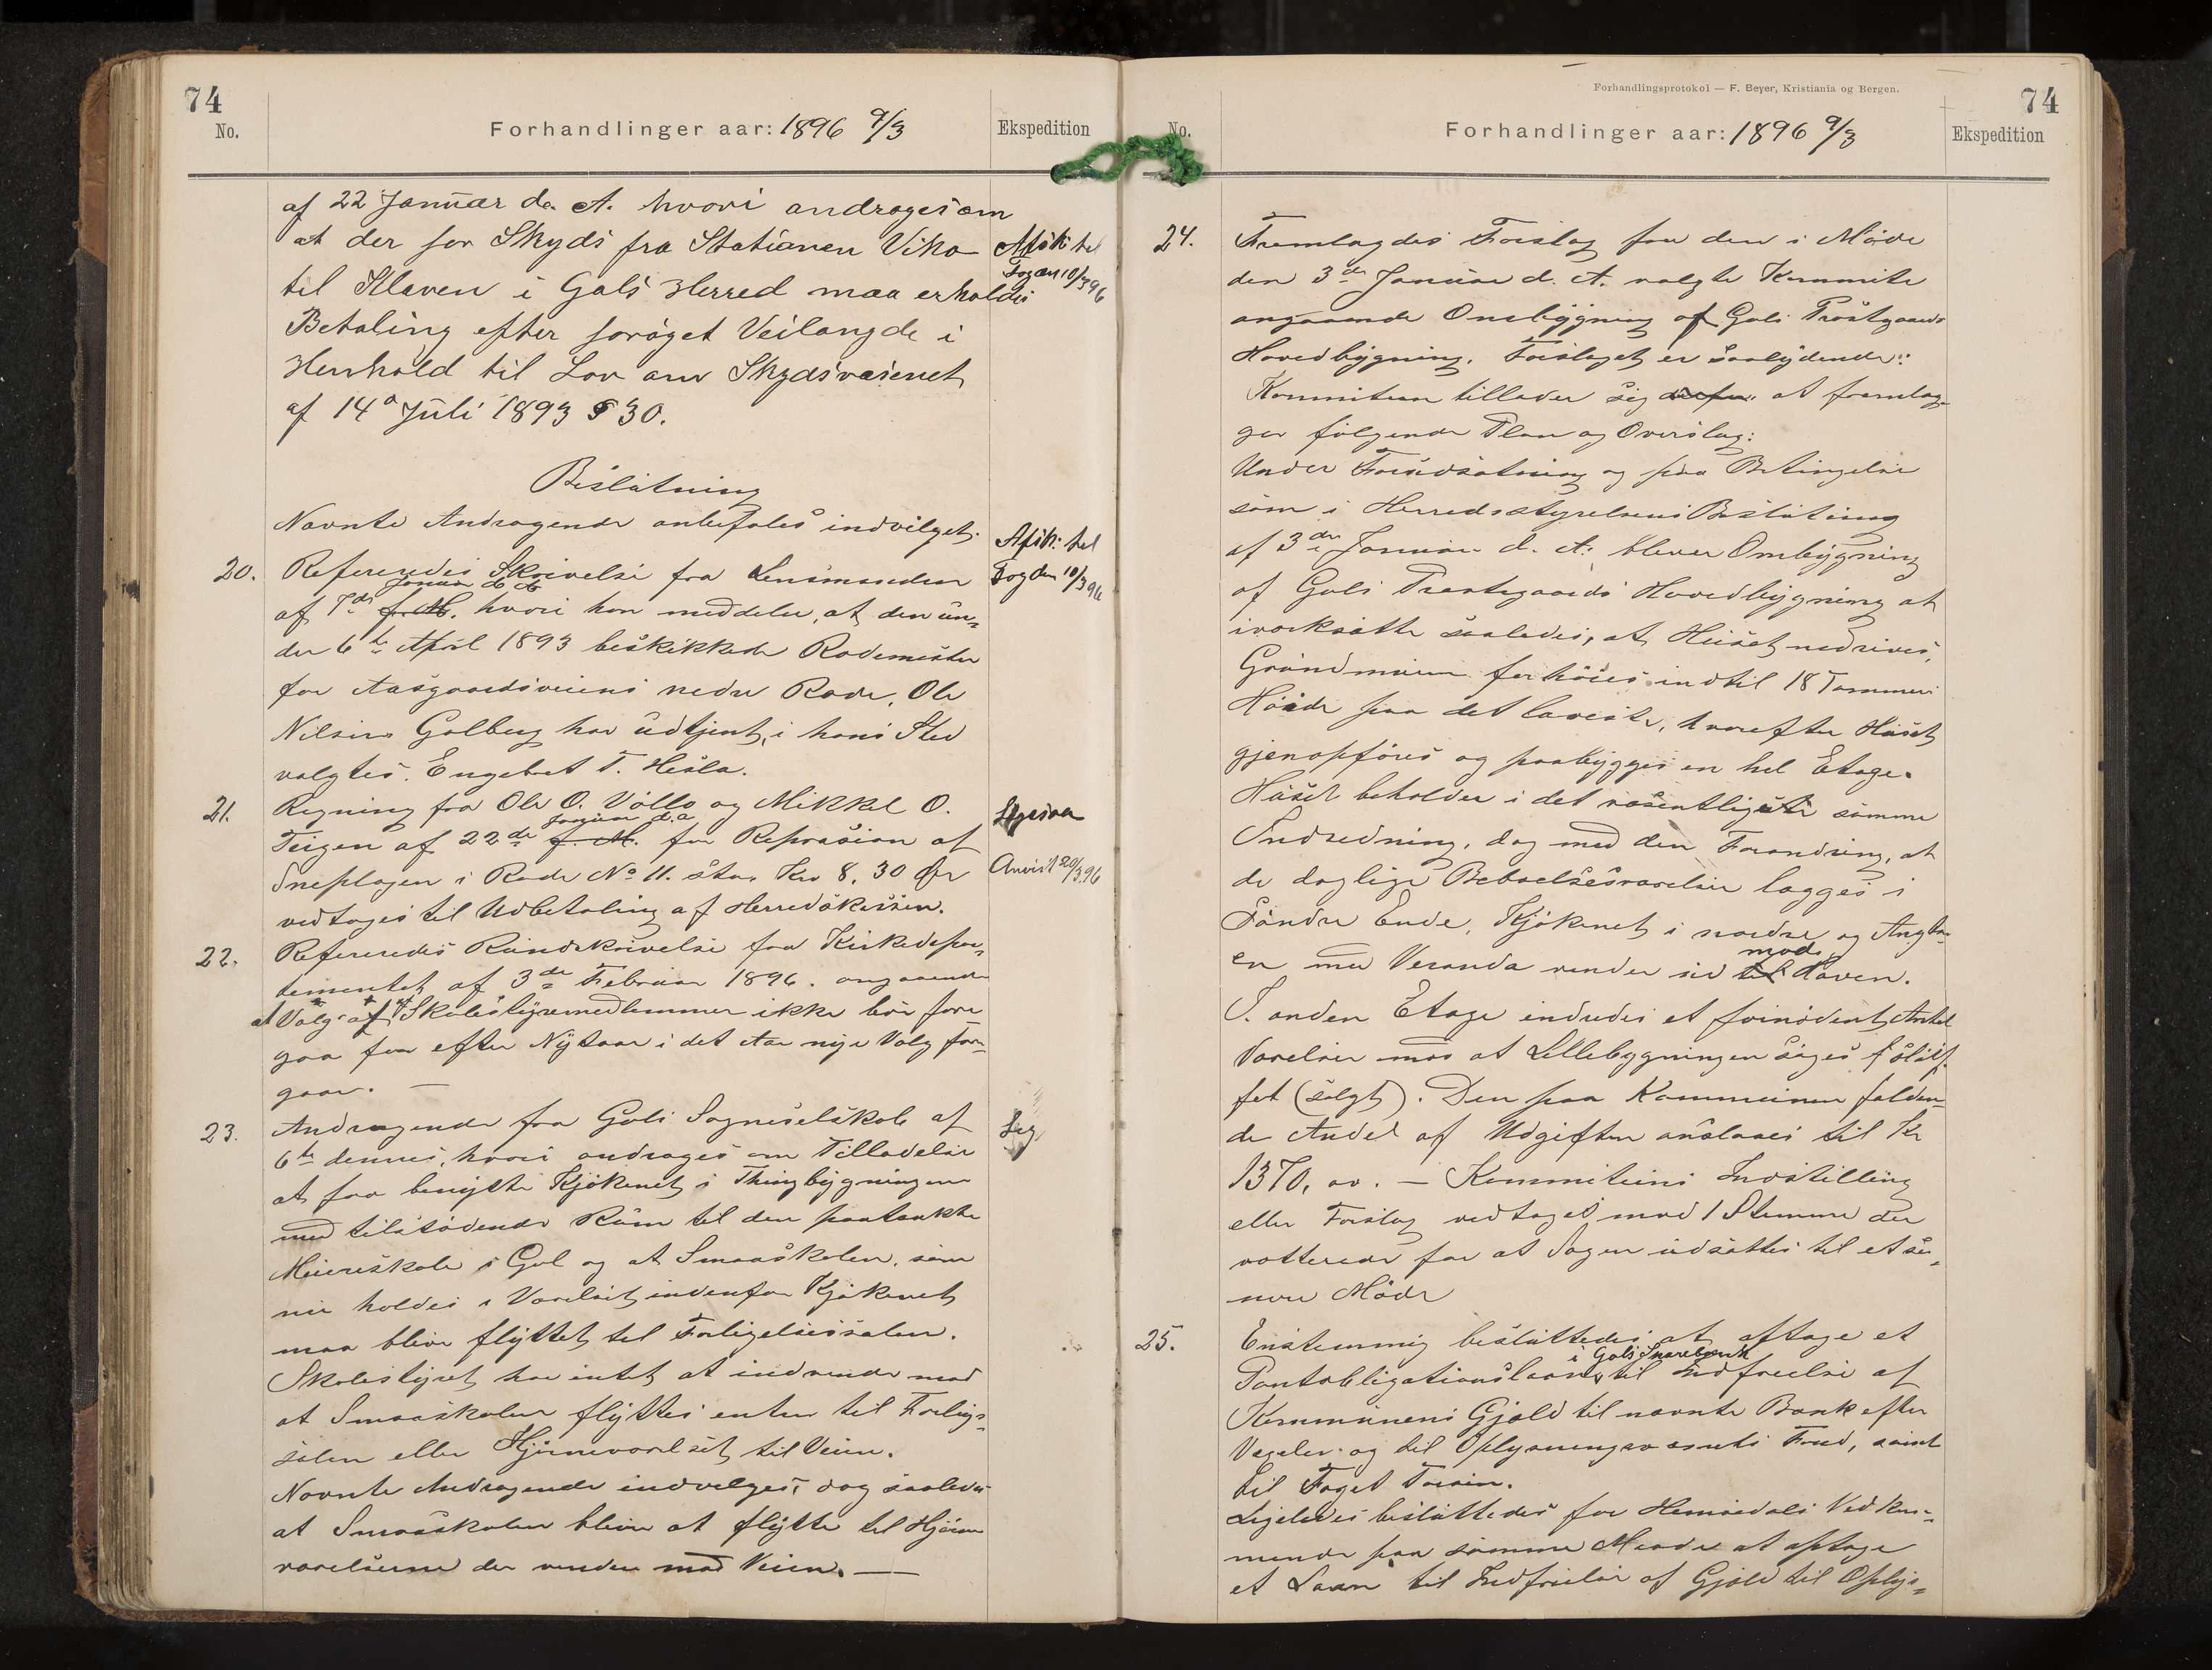 74
No.
Forhandlinger aar: 1896 9/3
Ekspedition
af 22 Januar d. A. hvori andrages om
at der for Skyds fra Stationen Viko
til Klaven i Gols Herred maa erholdes
Betaling efter forøget Veilængde i
Henhold til Lov om Skydsvæsenet
af 14de Juli 1893 § 30.
Afsk: til
Fogden 10/3 96
Beslutning
Nævnte Andragende anbefales indvilget.
20.
Refereredes Skrivelse fra Lensmanden
Januar d. A.
af 7de f. M. hvori han meddeler, at den un-
der 6te April 1893 beskikkede Rodemester
for Aasgaardsveiens nedre Rode, Ole
Nilsen Golberg har udtjent, i hans Sted
valgtes Engebret T. Hesla.
Afsk: til
Fogden 10/3 96
21.
Regning fra Ole O. Vøllo og Mikkel O.
Januar d. a
Teigen af 22de f. M. for Reprasion af
Sneplogen i Rode No 11. stor Kr 8,30 Øre
vedtages til Udbetaling af Herredskassen.
Anvist 20/3 96
22.
Refereredes Rundskrivelse fra Kirkedepar-
tementet af 3de Februar 1896. angaaende
at Valg af Skolestyremedlemmer ikke bør fore
gaa før efter Nytaar i det Aar nye Valg for-
gaar. —
23.
Andragende fra Gols Sogneselskab af
6te dennes, hvori andrages om Tilladelse
at faa benytte Kjøkenet i Thingbygningen
med tilstødende Rum til den paatænkte
Meieriskole i Gol og at Smaaskolen, som
nu holdes i Værelset indenfor Kjøkenet
maa blive flyttet til Forligelsessalen.
Skolestyret har intet at indvende mod
at Smaaskolen flyttes enten til Forligs-
salen eller Hjørneværelset til Veien.
Nævnte Andragende indvelges, dog saaledes
at Smaaskolen bliver at flytte til Hjørne
værelserne der vender mod Veien. —
Forhandlingsprotokol — F. Beyer, Kristiania og Bergen.
74
No.
Forhandlinger aar: 1896 9/3
Ekspedition
24.
Fremlagdes Forslag fra den i Møde
den 3de Januar d. A. valgte Kommite
angaaende Ombygning af Gols Præstgaards
Hovedbygning. Forslaget er saalydende:
Kommiteen tillader sig at fremlæg-
ger følgende Plan og Overslag:
Under Forudsætning og paa Betingelse
som i Herredsstyrelsens Beslutning
af 3de Januar d. A. bliver Ombygning
af Gols Præstegaards Hovedbygning at
iværksætte saaledes, at Huset nedrives,
Grundmuren forhøies indtil 18 Tommers
Høide paa det laveste, hvorefter Huset
gjenopføres og paabygges en hel Etage.
Huset beholder i det væsentligste samme
Indredning, dog med den Forandring, at
de daglige Beboelsesværelser lægges i
Søndre Ende, Kjøkenet i nordre og Angba-
mod
en med Veranda vender ud til Haven.
I. anden Etage indredes et fornødent Antal
Værelser mod at Lillebygningen søges sløif-
fet (solgt). Den paa Kommunen falden-
de Andel af Udgiften anslaaes til Kr
1370,00. — Kommiteens Indstilling
eller Forslag vedtages mod 1 Stemme der
votterede for at Sagen udsættes til et se-
nere Møde
25.
Enstemmig besluttedes at optage et
i Gols Sparebank
Pantobligationslaan til Indfrielse af
Kommunens Gjæld til nævnte Bank efter
Vexeler og til Oplysningsvæsenets Fond, samt
til Foged Thesen.
Ligeledes besluttedes for Hemsedals Vedkom-
mende paa samme Maade at optage
et Laan til Indfrielse af Gjæld til Oplys-